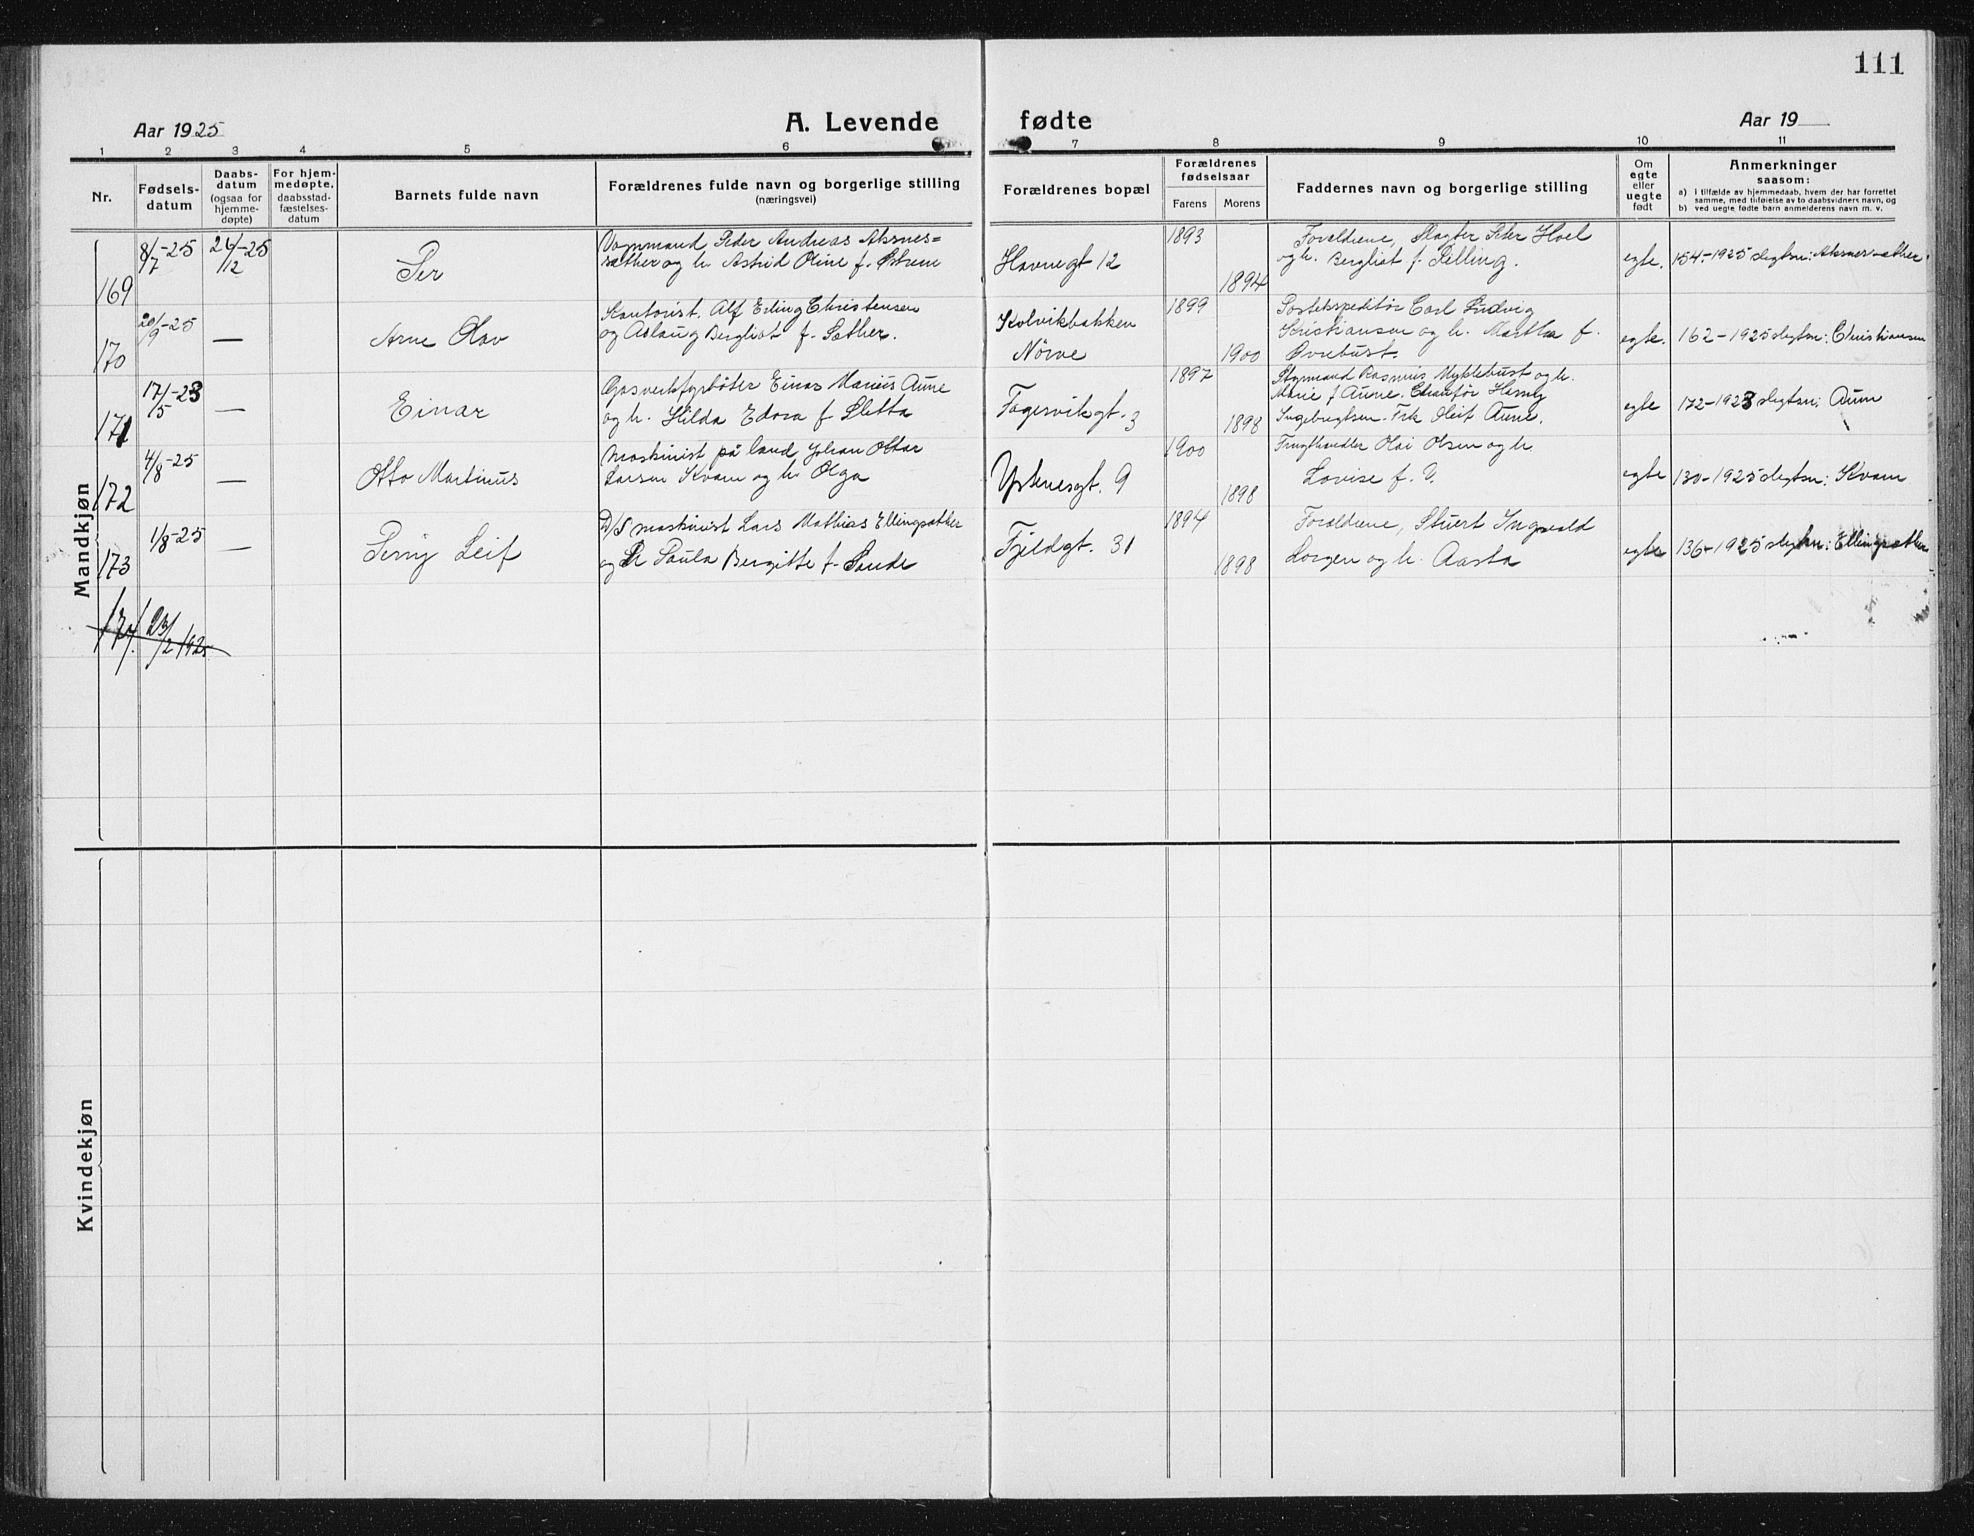 111
Aar 1925
A. Levende fødte
Aar 19
1 2 3 4 5 6 7 8 9 10 11
Nr.
Fødsels-
datum
Daabs-
datum
(ogsaa for
hjemme-
døpte)
For hjem-
medøpte,
daabsstad-
fæstelses-
datum
Barnets fulde navn
Forældrenes fulde navn og borgerlige stilling
(næringsvei)
Forældrenes bopæl
Forældrenes
fødselsaar
Farens
Morens
Faddernes navn og borgerlige stilling
Om
egte
eller
uegte
født
Anmerkninger
saasom:
a) i tilfælde av hjemmedaab, hvem der har forrettet
samme, med tilføielse av to daabsvidners navn, og
b) ved uegte fødte barn anmelderens navn m. v.
Mandkjøn
169
8/7-25
26/12-25
Per
Vognmand Peder Andreas Aksnes=
sæther og h. Astrid Oline f. Østrem
Havnegt 12
1893
1894
Forældrene, Slagter Peter Hoel
og h. Bergliot f. Pilling.
egte.
154-1925 slegtsn: Aksnessæther.
170
20/9-25
—
Arne Olav
Kontorist. Alf Erling Christensen
og Aslaug Bergliot f. Sæther.
Kolvikbakken
Nörve
1899
1900
Postekspeditör Carl Ludvig
Kristiansen og h. Martha f.
Øvrebust.
egte.
162-1925 slegtsn: Christiansen
171
17/5-23
—
Einar
Gasverksfyrböter Einar Marius Aune
og h. Hilda Edora f. Sletta
Fagersvikgt. 3
1897
1898
Styrmand Rasmus Myklebust og h.
Marie f Aune. Chauffør Harry
Ingebrigtsen. Frk Aune.
egte
172-1923 slegtsn: Aune
172
4/8-25
—
Otto Martinus
Maskinist på land Johan Ottar
Larsen Kvam og h. Olga
Ystenesgt. 9
1900
1898
Frugthandler Olai Olsen og h
Lovise f. O.
egte
130-1925 slegtsn: Kvam
173
1/8-25
—
Perry Leif
D/S maskinist Lars Mathias Ellingsæther
og h Paula Bergitte f. Sande
Fjeldgt. 31
1894
1898
Forældrene, Stuert Ingvald
Lorgen og h. Aasta
egte
136-1925 slegtsn: Ellingsæther
174. 23/2 1925
Kvindekjøn